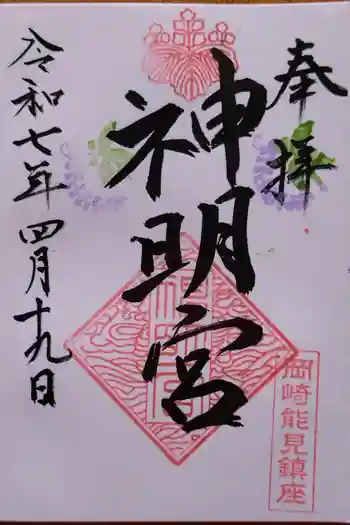 奉拝
神明宮
令和七年四月十九日
岡崎能見鎮座